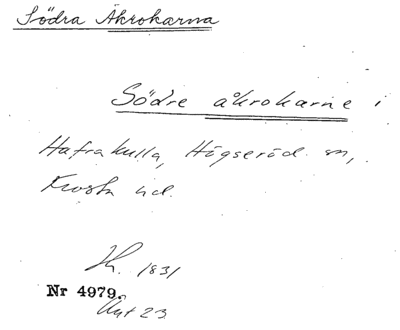 Södra Åkrokarna
Södre åkrokarne i
Hafrakulla, Högseröd sn,
Frosta hd.
1831
Nr 4979.
Akt 23